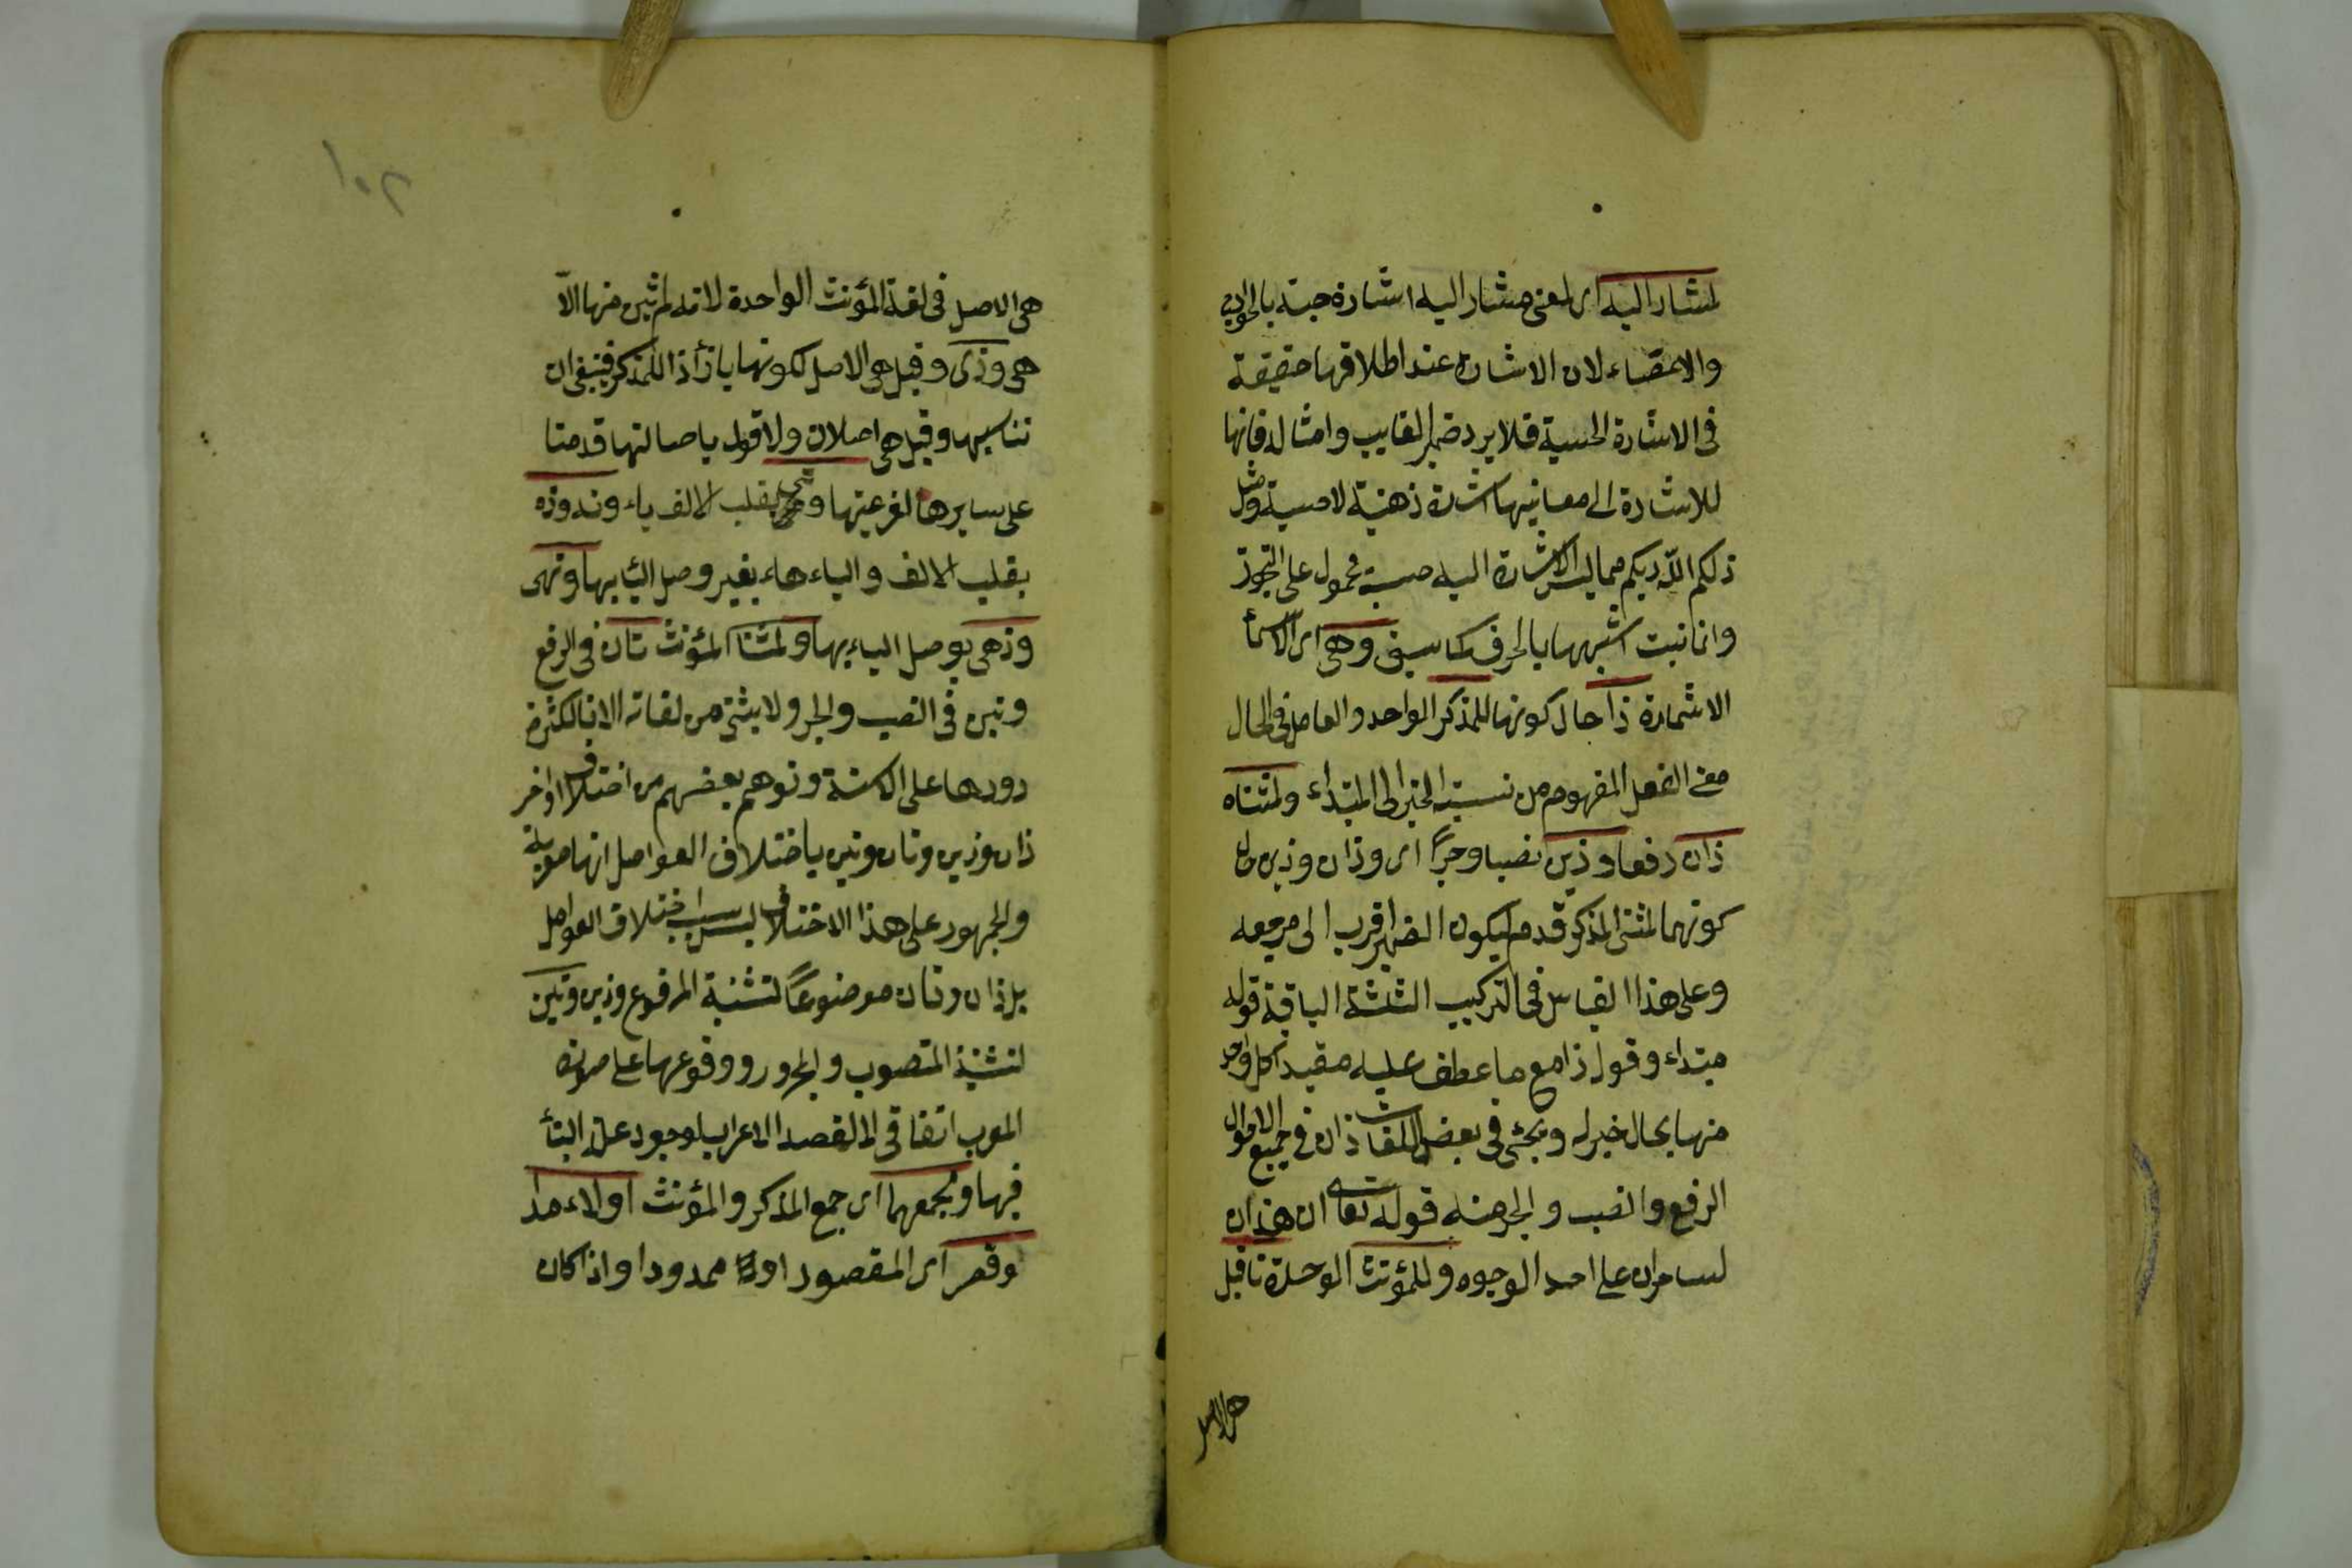 لمشار اليه اى لمعنى مشار اليه اشارة حسية بالجوارح
والاعضاء لان الاشارة عند اطلاقها حقيقة
فى الاشارة الحسية فلا يرد ضمير الغايب وامثاله فانها
للاشارة الى معانيها اشارة ذهنية لا حسية ومثل
ذلكم الله ربكم مما ليس الاشارة اليه حسية محمول على التجوز
وانما بنيت لشبهها بالحرف كما سبق وهى اى الاسماء
الاشارة ذا حال كونها للمذكر الواحد والعامل فى الحال
معنى الفعل المفهوم من نسبة الخبر الى المبتداء ولمثناه
ذان رفعا وذين نصبا وجرا اى وذان وذين حال
كونهما لمثنى المذكر قدم ليكون الضمير اقرب الى مرجعه
وعلى هذا القياس فى التركيب الثلثة الباقية قوله
مبتداء وقوله ذا مع ما عطف عليه مقيد كل واحد
منها بحال خبره ويجئ فى بعض اللغات ذان فى جميع الاحوال
الرفع والنصب والجر منه قوله تعالى ان هذان
لساحران على احد الوجوه وللمؤنث الواحدة تا قيل
هى الاصل
١٠٢
هى الاصل فى لغة المؤنث الواحدة لانه لم يثن منها الّا
هى وذى وقيل هى الاصل لكونها بازاء ذا للمذكر فينبغى ان
تناسبها وقيل هى اصلان ولاقول باصالتها قدمتا
على سايرها لفرعيتها وتى بقلب الالف ياء وته وذه
بقلب الالف والياء هاء بغير وصل الياء بها وتهى
وذهى بوصل الياء بها ولمثناه المؤنث تان فى الرفع
وتين فى النصب والجر ولا يثنى من لغاته الا تا لكثرة
دورها على الالسنة وتوهم بعضهم من اختلاف اواخر
ذان وذين وتان وتين باختلاف العوامل انها معربة
والجمهور على هذا الاختلاف ليس بسبب اختلاف العوامل
بل ذان وتان موضوعا لتثنية المرفوع وذين وتين
لتثنية المنصوب والمجرور ووقوعها على صورة
المعرب اتفاقى لا لقصد الاعراب لوجود علة البناء
فيها ولجمعهما اى جمع المذكر والمؤنث اولاء مدا
وقصر اى المقصور اولاء ممدودا واذا كان